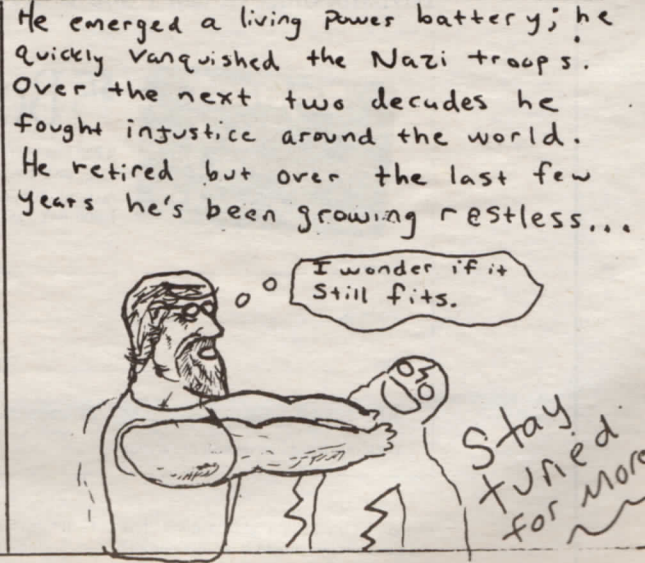 He emerged a living power battery; he
quickly vanquished the Nazi troops.
Over the next two decades he
fought injustice around the world.
He retired but over the last few
years he's been growing restless...
I wonder if it
still fits.
Stay
tuned
for more